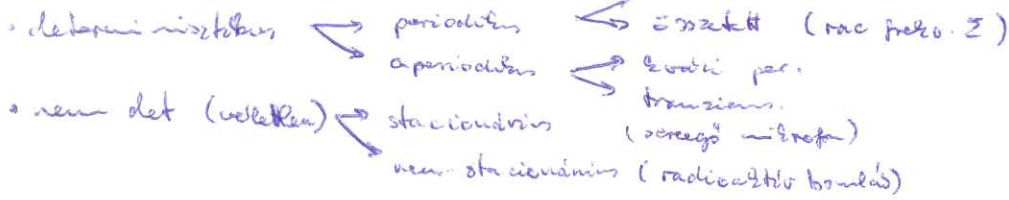 • determinisztikus → periodikus → összetett (rac frekv. Σ)
→ aperiodikus → kvázi per.
→ tranziens.
• nem det (véletlen) → stacionárius (sercegő mikrofon)
→ nem-stacionárius (radioaktív bomlás)